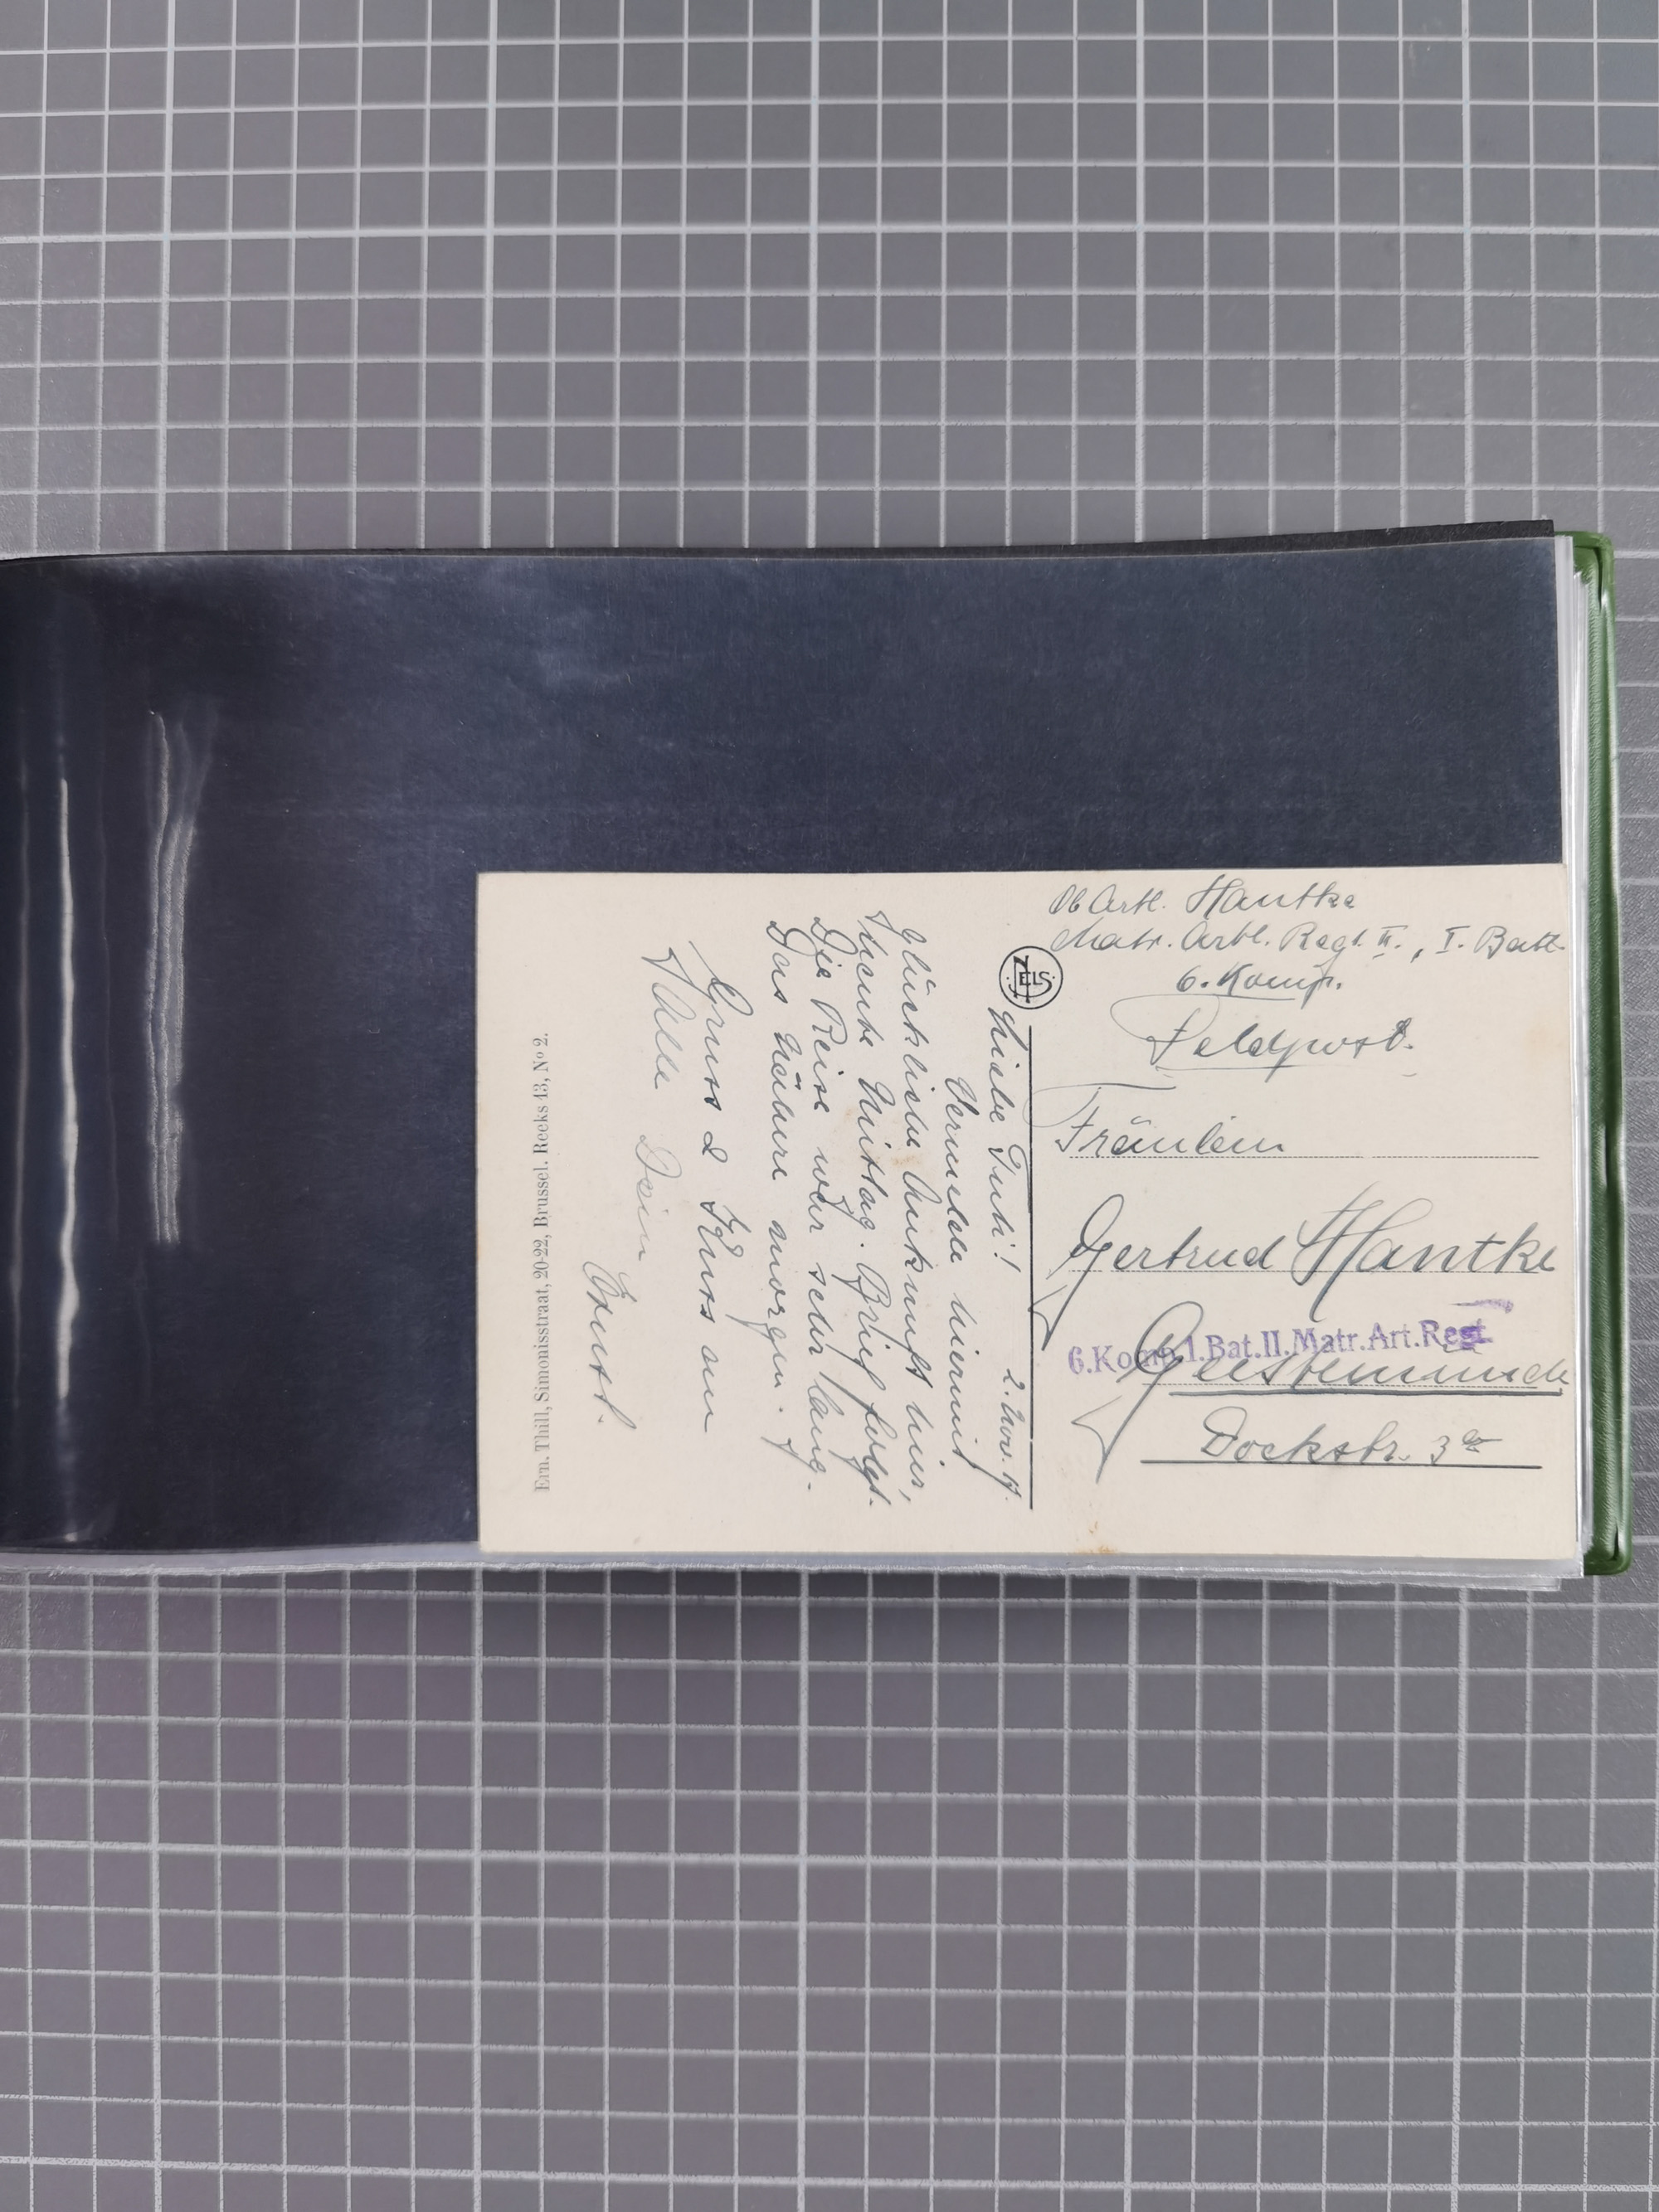 Ob Artl. Hantke
Matr. Artl. Regt. II., I. Batl.
6. Komp.
Feldpost.
Fräulein
Gertrud Hantke
6.Komp.I.Bat.II.Matr.Art.Regt
Geestemünde
Dockstr. 3
NELS
2. Nov. 17.
Liebe Trudi!
Vermelde hiermit
glückliche Ankunft hier,
heute Mittag. Brief folgt.
Die Reise war sehr lang.
Das Nähere morgen.
Gruss & Kuss an
Alle Dein
Ernst.
Ern. Thill, Simonisstraat, 20-22, Brussel. Reeks 13, Nº 2.